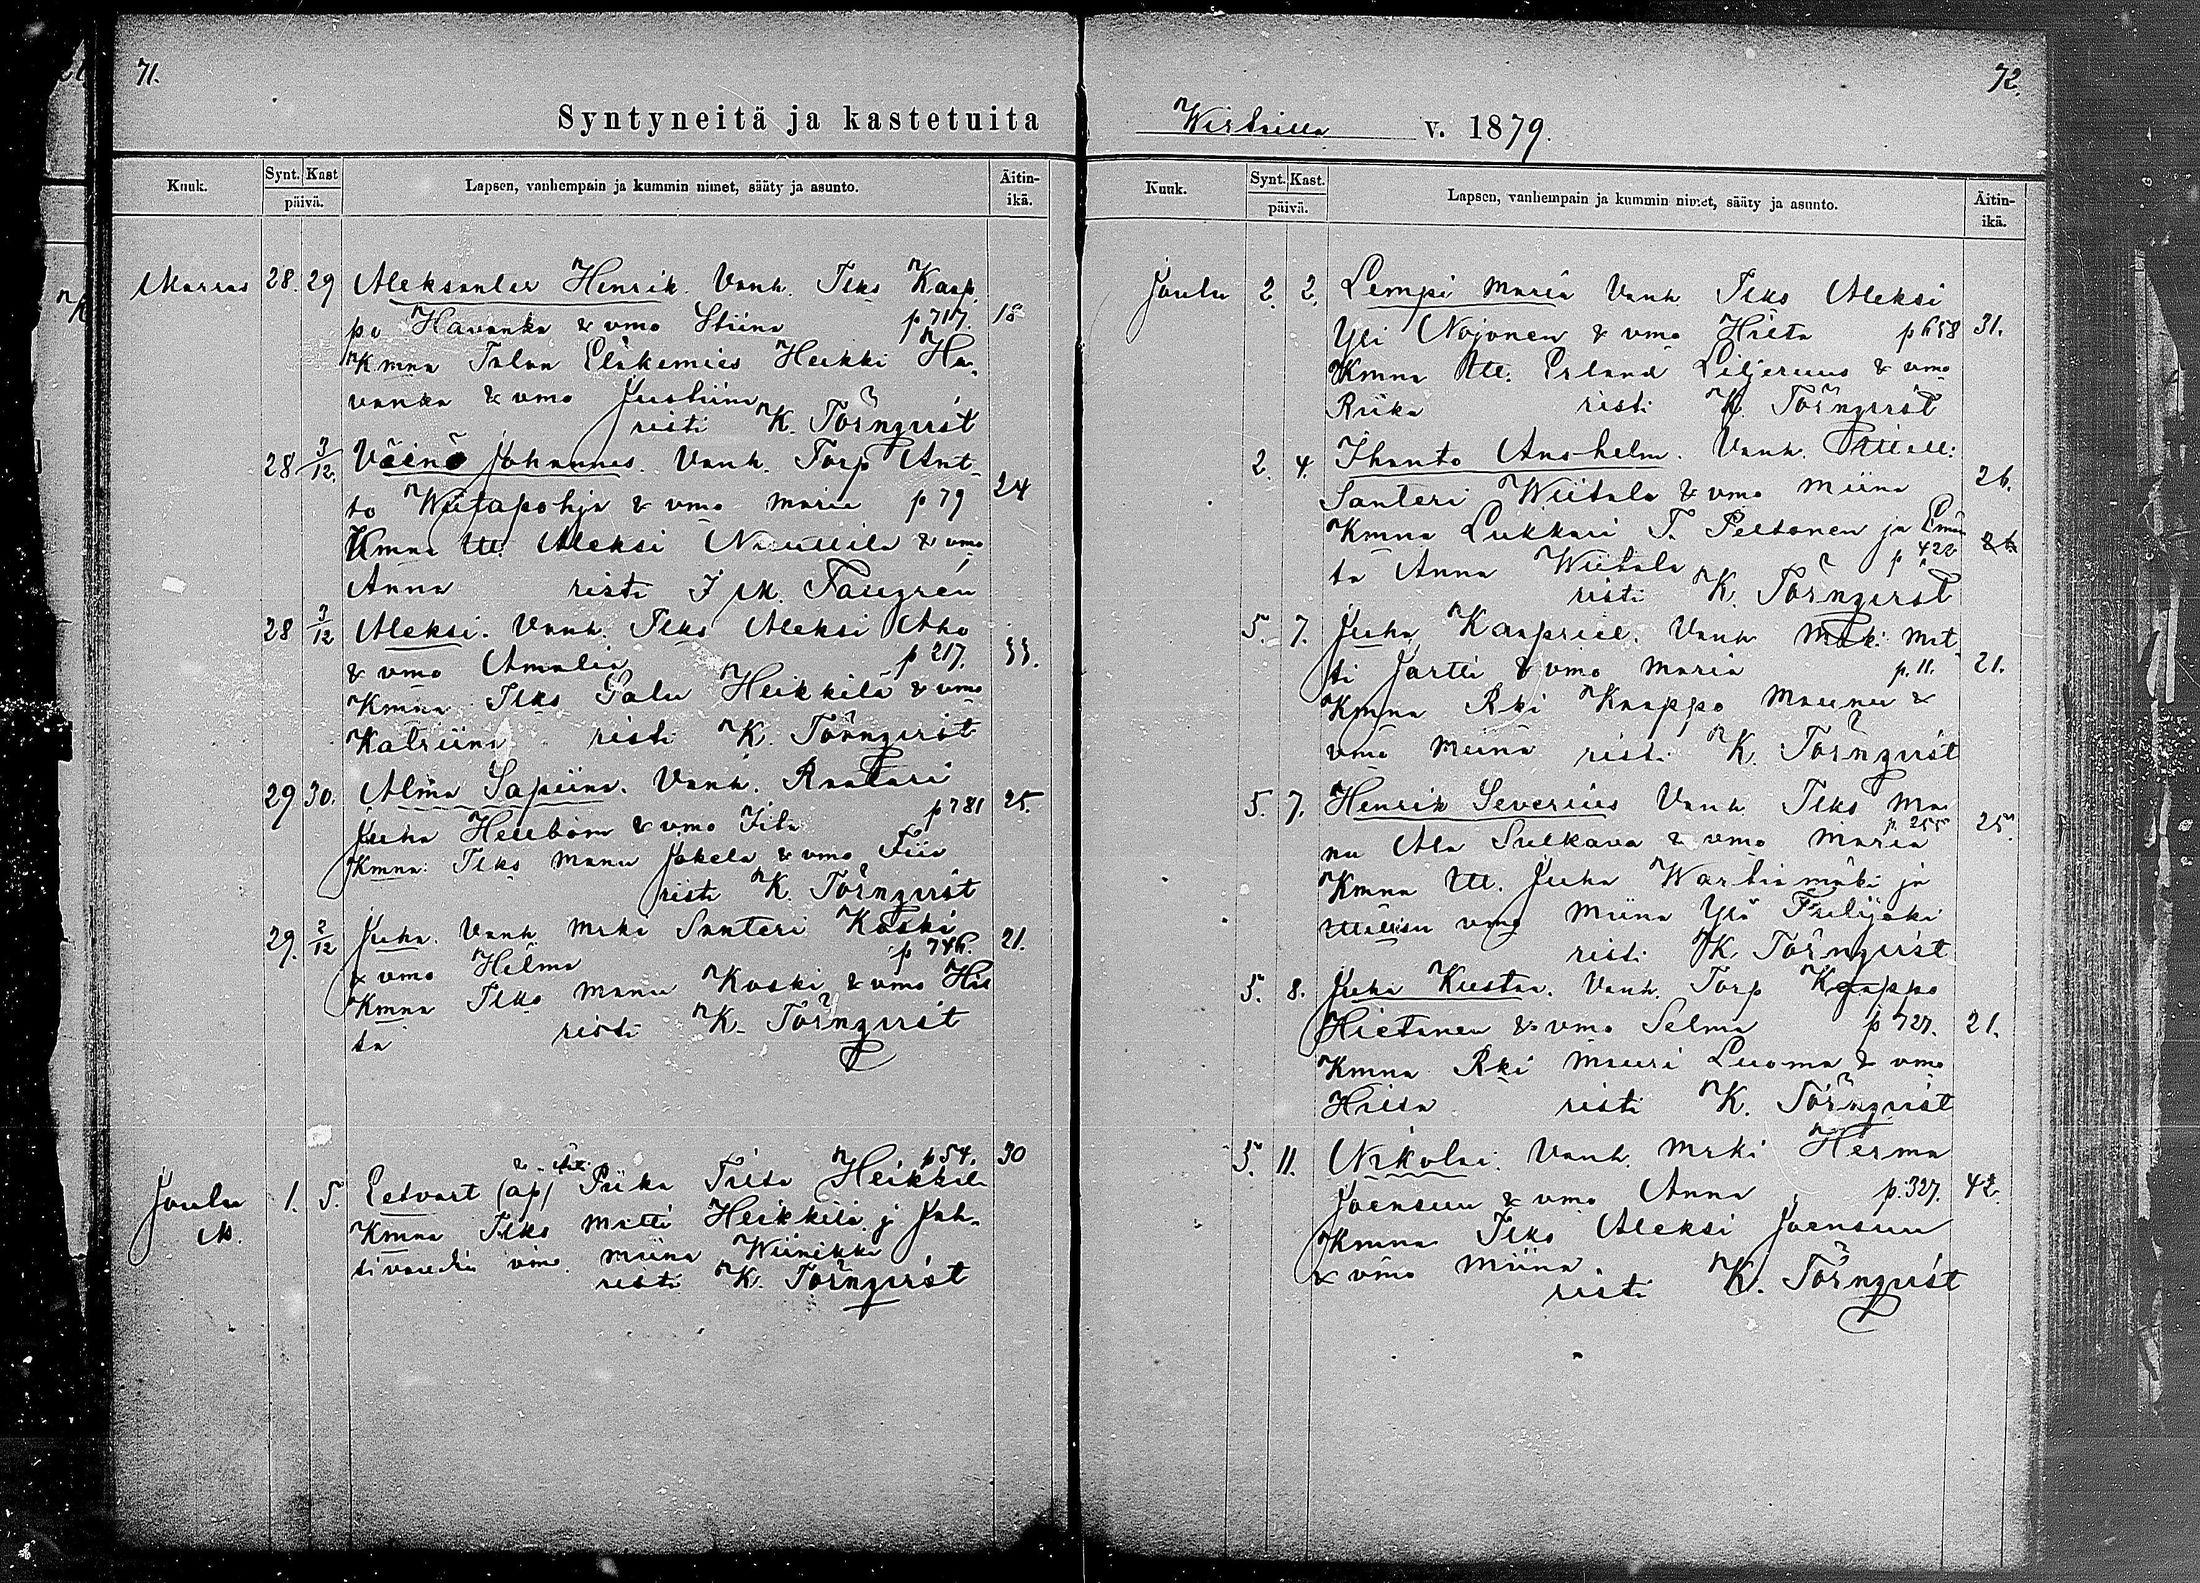 71.
Syntyneitä ja kastetuita
Kuuk.
Synt. Kast
päivä.
Lapsen, vanhempain ja kummin nimet, sääty ja asunto.
Äitin-
ikä.
Marras 28. 29 Aleksanter Henrik. Vanh. Ilks Kaap-
po Havanka & vmo Stiina p 717. 18
Kmna Talon Eläkemies Heikki Ha-
vanka & vmo Justiina
risti K. Törnqvist
28 3/12. Väinö Johannes. Vanh. Torp Ant-
to Wiitapohja & vmo Maria p 79 24
Kmna Aleksi & vmo
Anna risti I M. Favgrén
28 3/12 Aleksi. Vanh. Ilks Aleksi Aho
& vmo Amalia p 217. 33.
Kmna Ilks Salu Heikkilä & vmo
Katriina risti K. Törnqvist
29 30. Alma Sapiina. Vanh. Raatari
Juha Hellbom & vmo Iita p 781 25.
Kmna: Ilks Manu Jakela & vmo Fiia
risti K. Törnqvist
29. 2/12 Juha. Vanh Mrki Santeri Koski
& vmo Hilma p 746. 21.
Kmna Ilks Manu Koski & vmo Hil
ta risti K. Törnqvist
Joulu 1. 5. Eedvart (äp) Piika Iita Heikkilä p 54. 30
M. Kmna Ilks Matti Heikkilä j Jah-
tivoudin vmo. Miina Wiinikka
risti K. Törnqvist
72.
Wirtailla v. 1879.
Kuuk.
Synt. Kast.
päivä.
Lapsen, vanhempain ja kummin nimet, sääty ja asunto.
Äitin-
ikä.
Joulu 2. 2. Lempi Maria Vanh Ilks Aleksi
Yli Nojonen & vmo Hilta p 658 31.
Kmna Erland Liljeruus & vmo
Riika risti K. Törnqvist
2. 4. Ihanto Anshelm. Vanh.
Santeri Wiitala & vmo Miina 26.
Kmna Lukkari T. Peltonen ja Emän
tä Anna Wiitala p 422
risti K. Törnqvist
5. 7. Juha Kaapriel. Vanh Mrk: Mat
ti Jartti & vmo Maria p. 11. 21.
Kmna Rki Kaappo Maunu &
vmo Miina risti K. Törnqvist
5. 7. Henrik Severius Vanh Ilks Ma
nu Ala Sulkava & vmo Maria p. 255 25.
Kmna Juha Wartiamäki ja
vmo Miina Ylä
risti K. Törnqvist
5. 8. Juha Kustaa. Vanh. Torp Kaappo
Hietanen & vmo Selma p 727. 21.
Kmna Rki Mauri Luoma & vmo
Hilda risti K. Törnqvist
5. 11. Nikolai. Vanh. Mrki Herma
Joensuu & vmo Anna p. 327. 42
Kmna Ilks Aleksi Joensuu
& vmo Miina
risti K. Törnqvist